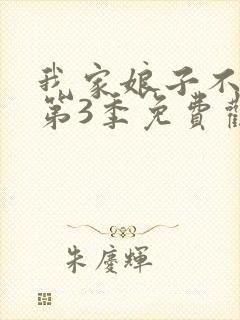 我家娘子不
第3季免費
朱慶輝